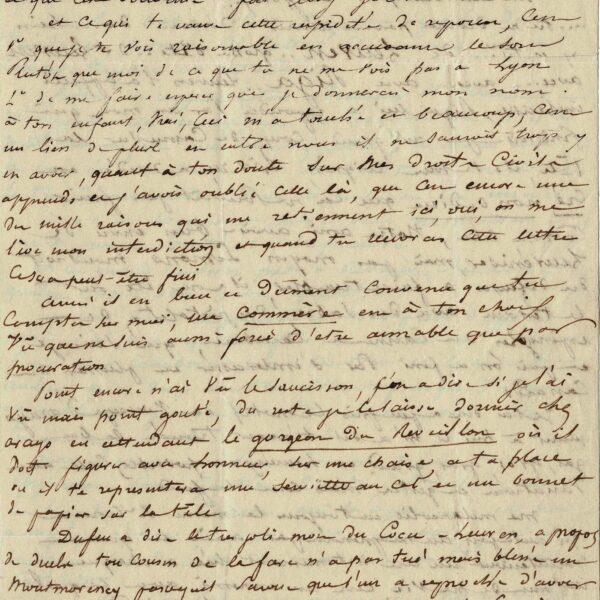 et ce qui te vaux cette rapidité de reponse, C'en
1° que je te vois raisonnable en accusant le sort
Plutot que moi de ce que tu ne me vois pas a Lyon
2° de me faire esperer que je donnerais mon nom
à ton enfant, vrai, Ceci m'a touché et beaucoup, C'en
un lien de plus en entre nous il ne sauroit trop y
en avoir, quant à ton doute sur mes droits Civils
apprends et j'avois oublié celle là, que C'en encore une
du mille raisons qui me retiennent ici, oui, on me
leve mon interdiction et quand tu recevras cette lettre
Ce sera peut-être fini
ainsi il en bien et Dument Convenu que tu
Compte sur moi, une Commère en à ton choix
Vû que ne suis aussi forcé d'etre aimable que par
procuration
Point encore n'ai vû le saucisson, j'en a dire si je l'ai
vû mais point gouté, du reste je le laisse dormir chez
arago en attendant le gorgeon du Reveillon où il
doit figurer avec honneur, sur une chaise, a ta place
ou il te representera une serviette au col et un bonnet
de papier sur la tête
Dufeu a dit le tres joli mot du Cocu - heureux, a propos
de duels ton cousin de la fare n'a pas tué mais blessé un
Montmorency parcequ'il l'un a reproché d'avoir